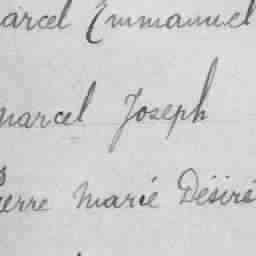 arcel Emmanuel
marcel Joseph
ierre Marie Désiré